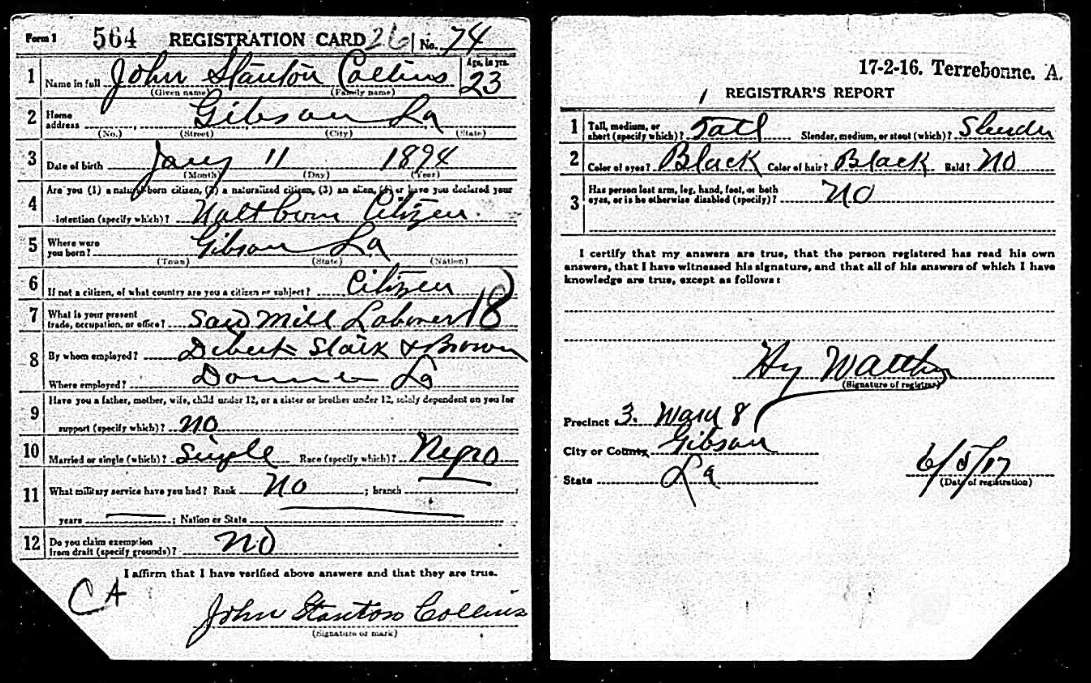 Form 1 564 REGISTRATION CARD 261 No. 74
1 Name in full John Stanton Collins Age, in yrs. 23
(Given name) (Family name)
2 Home address Gibson La
(No.) (Street) (City) (State)
3 Date of birth Jany 11 1894
(Month) (Day) (Year)
4 Are you (1) a natural born citizen, (2) a naturalized citizen, (3) an alien, (4) or have you declared your
intention (specify which)? Naltborn Citizen.
5 Where were you born? Gibson La
(Town) (State) (Nation)
6 If not a citizen, of what country are you a citizen or subject? Citizen
7 What is your present trade, occupation, or office? Saw Mill Laborer 18
8 By whom employed? Dibert Stark & Brown
Where employed? Donner La
9 Have you a father, mother, wife, child under 12, or a sister or brother under 12, solely dependent on you for
support (specify which)? NO
10 Married or single (which)? Single Race (specify which)? Negro
11 What military service have you had? Rank No ; branch ;
years ; Nation or State
12 Do you claim exemption from draft (specify grounds)? NO
I affirm that I have verified above answers and that they are true.
CA
John Stanton Collins
(Signature or mark)
17-2-16. Terrebonne. A.
REGISTRAR'S REPORT
1 Tall, medium, or short (specify which)? Tall Slender, medium, or stout (which)? Slender
2 Color of eyes? Black Color of hair? Black Bald? NO
3 Has person lost arm, leg, hand, foot, or both eyes, or is he otherwise disabled (specify)? NO
I certify that my answers are true, that the person registered has read his own
answers, that I have witnessed his signature, and that all of his answers of which I have
knowledge are true, except as follows:
Hy
(Signature of registrar)
Precinct 3. Ward 8
City or County Gibson
State La
6/5/17
(Date of registration)